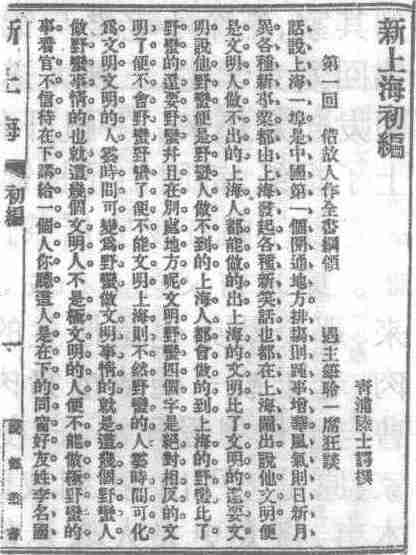 新上海初編
青浦陸士諤撰
第一回 借故人作全書綱領 遇主筆聆一席狂談
話說上海一埠是中國第一個開通地方排場則踵事增華風氣則日新月
異各種新事業都由上海發起各種新笑話也都在上海鬧出說他文明便
是文明人做不出的上海人都能做的出上海的文明比了文明的還要文
明說他野蠻便是野蠻人做不到的上海人都會做的到上海的野蠻比了
野蠻的還要野蠻并且在別處地方呢文明野蠻四個字是絕對相反的文
明了便不會野蠻野蠻了便不能文明上海則不然野蠻的人霎時間可化
爲文明文明的人霎時間可變爲野蠻做文明事情的就是這幾個野蠻人
做野蠻事情的也就這幾個文明人不是極文明的人便不能做極野蠻的
事看官不信待在下講給一個人你聽這人是在下的同窗好友姓李名國
新上海 初編 一